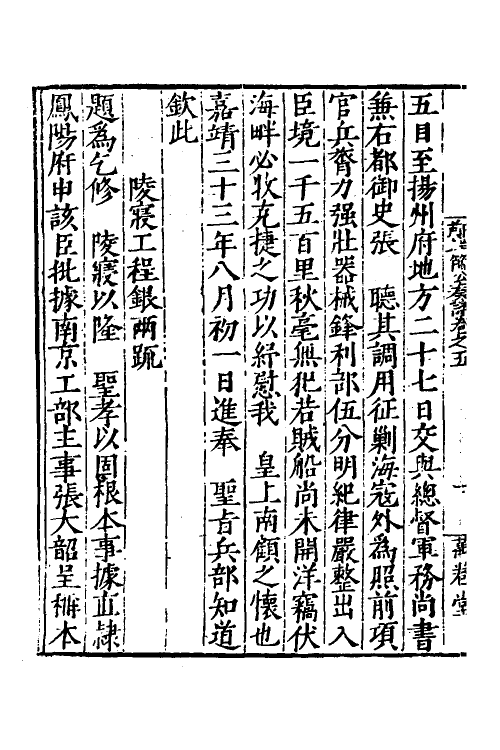 五日至揚州府地方二十七日交與總督軍務尚書
兼右都御史張　聽其調用征剿海寇外為照前項
官兵膂力强壯器械鋒利部伍分明紀律嚴整出入
臣境一千五百里秋毫無犯若賊船尚未開洋竊伏
海畔必收克捷之功以紓慰我　皇上南顧之懷也
嘉靖三十三年八月初一日進奉　聖旨兵部知道
欽此
陵寢工程銀兩疏
題為乞修　陵寢以隆　聖孝以固根本事據直隸
鳳陽府申該臣批據南京工部主事張大韶呈稱本
奏議卷之五
卷堂